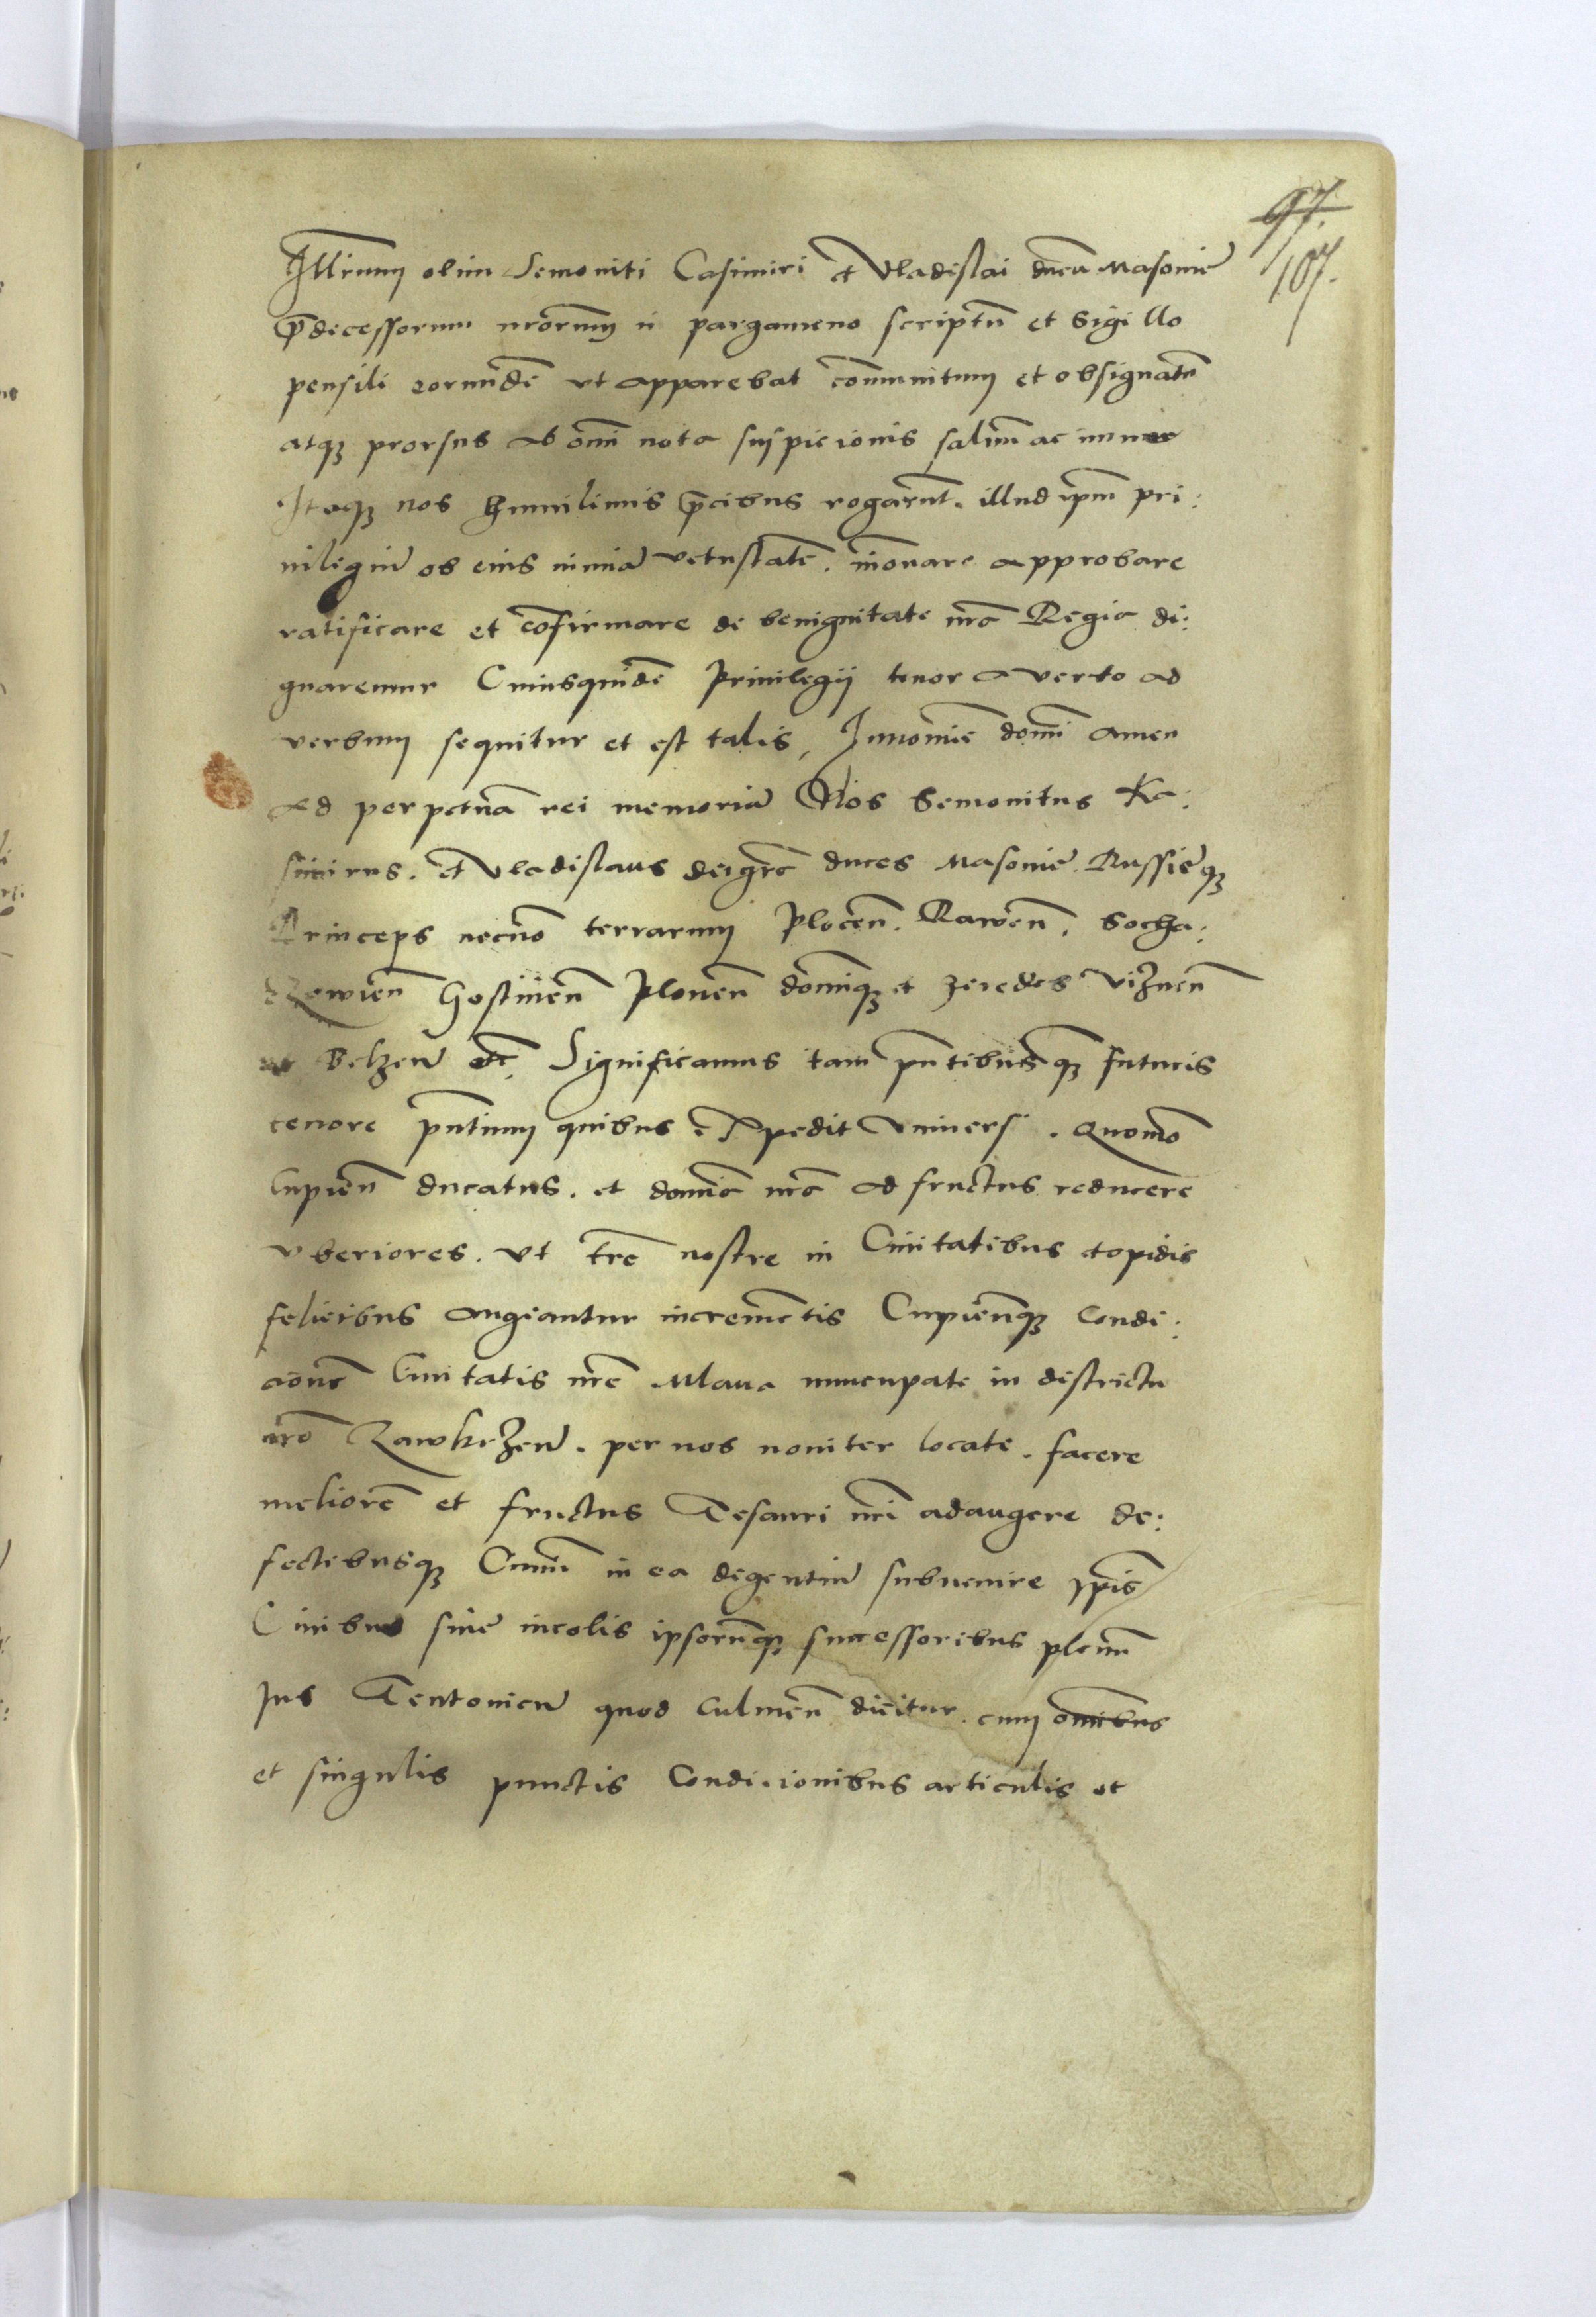 97.
107.
Illrium olim Semoviti Casimiri et Vladislai ducu Masovie
p̄decessorum nrorum in pargameno scriptu et sigillo
pensili eorundē ut apparebat cōmunitum et obsignatū
atqȝ prorsus ab omī nota suspicionis salvum ac immune
Itaqȝ nos humilimis p̄cibus rogarūt. illud ipm pri:
vilegiū ob eius nimiā vetustatē. inovare approbare
ratificare et cōfirmare de benignitate nrā Regia di:
gnaremur Cuiusquidē Privilegii tenor a verbo ad
verbum sequitur et est talis, Innomine domī amen
Ad perpetuā rei memoriā Nos Semovitus Ka:
simirus. et Vladislaus dei grā duces Masovie Russieqȝ
Princeps necno terrarum Plocen. Rawen. Socha:
Czewien Gostinen Plonen dominiqȝ et heredes Viznen
Belzen etc Significamus tam pntibus qȝ futuris
tenore pntium quibus expedit universi. Quomo
Cupien ducatus. et domia nra ad fructus reducere
uberiores. ut tre nostre in Civitatibus et opidis
felicibus augeantur incrementis Cupienqȝ Condi:
cione Civitatis nre Mlava nuncupate in districtu
nro Zawkrzen. per nos noviter locate. facere
meliorē et fructus Tesauri nri adaugere de:
fectibusqȝ Civium in ea degentiū subvenire ipis
Civibus sive incolis ipsorūqȝ successoribus plenum
Jus Teutonicū quod Culmen dicitur. cum omnibus
et singulis punctis Condicionibus articulis et